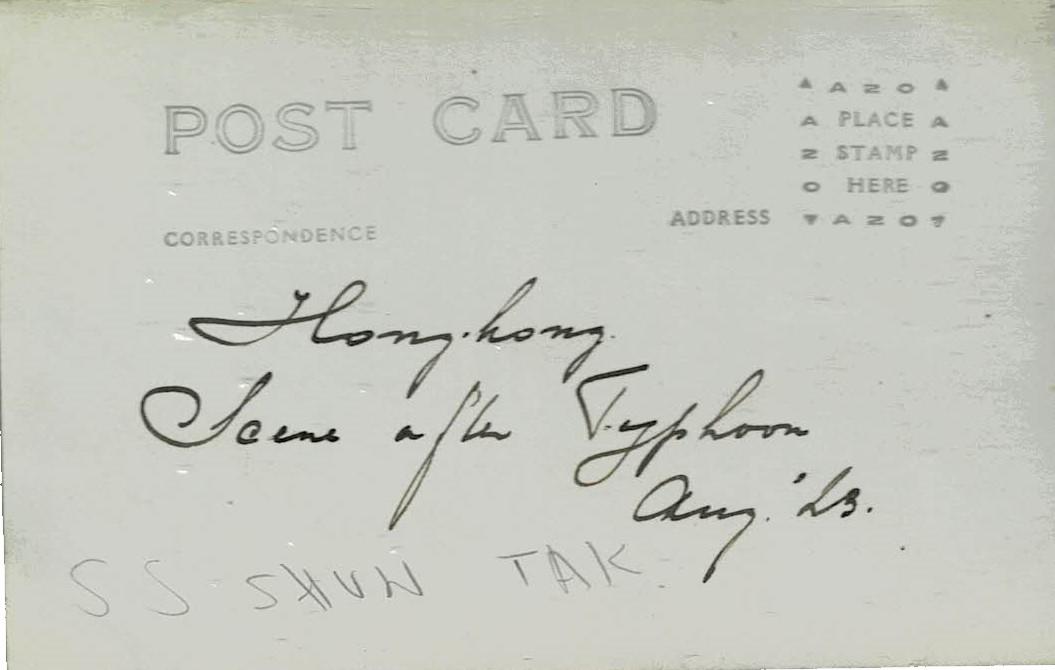 POST CARD
▲ A Z O ▲
A PLACE A
Z STAMP Z
O HERE O
▼ A Z O ▼
CORRESPONDENCE
ADDRESS
Hongkong.
Scene after Typhoon
Aug. '23.
SS SHUN TAK.